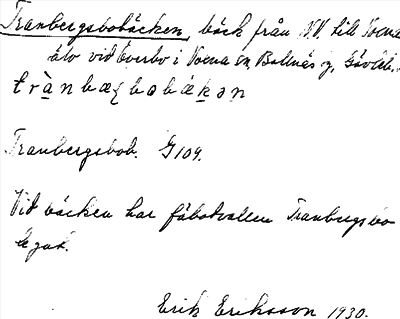 Tranbergsbobäcken, bäck från N.V. till Voxna
älv vid Överbo i Voxna sn, Bollnäs g, Gävleb.
Tranbergsbob. G 109.
Vid bäcken har fäbodvallen Tranbergsbo
legat.
Erik Eriksson 1930.